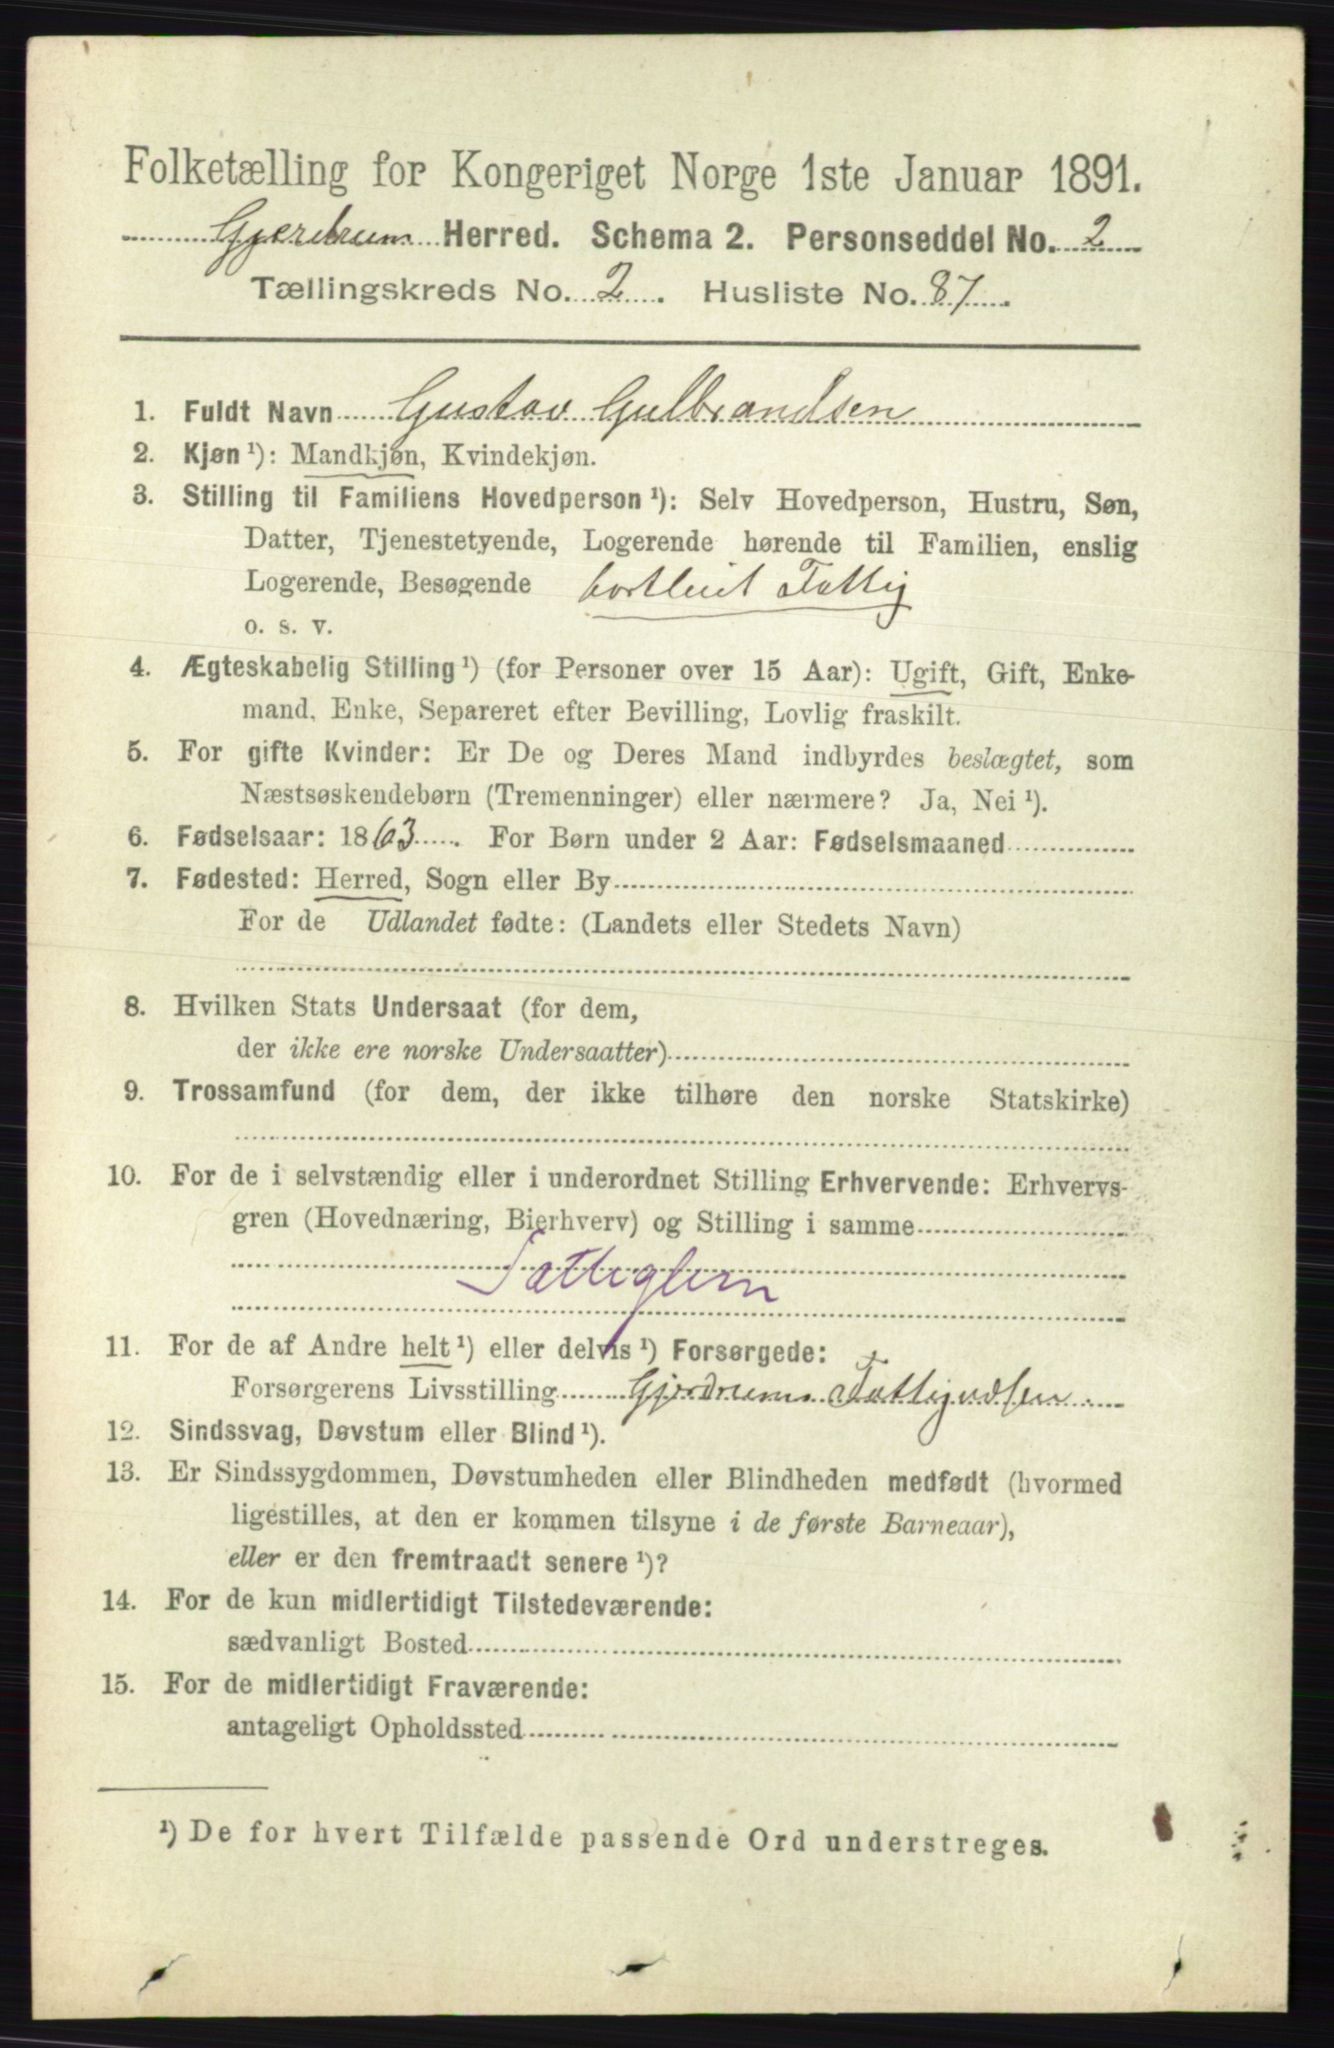 Folketælling for Kongeriget Norge 1ste Januar 1891.
Gjerdrum Herred. Schema 2. Personseddel No. 2
Tællingskreds No. 2. Husliste No. 87.
1. Fuldt Navn Gustav Gulbrandsen
2. Kjøn ¹): Mandkjøn, Kvindekjøn.
3. Stilling til Familiens Hovedperson ¹): Selv Hovedperson, Hustru, Søn,
Datter, Tjenestetyende, Logerende hørende til Familien, enslig
Logerende, Besøgende bortleiet Fattig
o. s. v.
4. Ægteskabelig Stilling ¹) (for Personer over 15 Aar): Ugift, Gift, Enke-
mand, Enke, Separeret efter Bevilling, Lovlig fraskilt.
5. For gifte Kvinder: Er De og Deres Mand indbyrdes beslægtet, som
Næstsøskendebørn (Tremenninger) eller nærmere? Ja, Nei ¹).
6. Fødselsaar: 1863. For Børn under 2 Aar: Fødselsmaaned
7. Fødested: Herred, Sogn eller By
For de Udlandet fødte: (Landets eller Stedets Navn)
8. Hvilken Stats Undersaat (for dem,
der ikke ere norske Undersaatter)
9. Trossamfund (for dem, der ikke tilhøre den norske Statskirke)
10. For de i selvstændig eller i underordnet Stilling Erhvervende: Erhvervs-
gren (Hovednæring, Bierhverv) og Stilling i samme
Fattiglem
11. For de af Andre helt ¹) eller delvis ¹) Forsørgede:
Forsørgerens Livsstilling Gjerdrums Fattigvæsen
12. Sindssvag, Døvstum eller Blind ¹).
13. Er Sindssygdommen, Døvstumheden eller Blindheden medfødt (hvormed
ligestilles, at den er kommen tilsyne i de første Barneaar),
eller er den fremtraadt senere ¹)?
14. For de kun midlertidigt Tilstedeværende:
sædvanligt Bosted
15. For de midlertidigt Fraværende:
antageligt Opholdssted
¹) De for hvert Tilfælde passende Ord understreges.